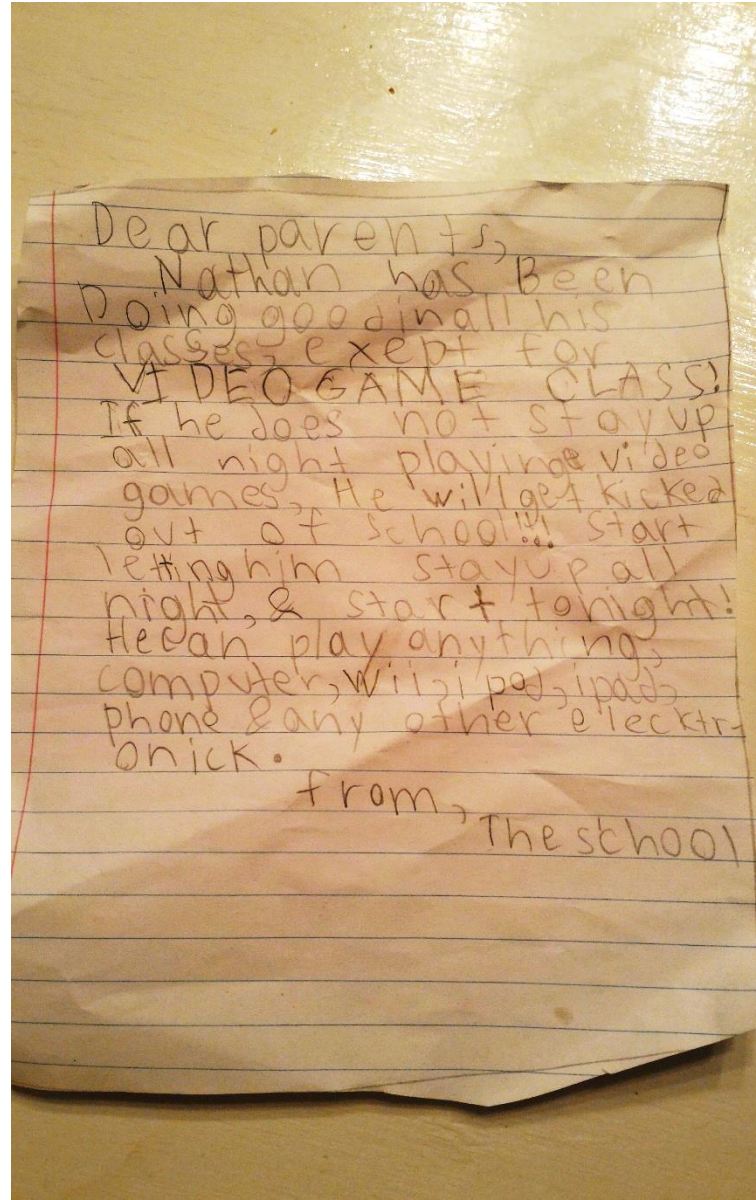 Dear parents,
Nathan has Been
Doing good in all his
classes, exept for
VIDEO GAME CLASS!
If he does not stay up
all night playing video
games, He will get kicked
out of school!!! Start
letting him stay up all
night, & start tonight!
He can play anything,
computer, wii, ipod, ipad,
phone & any other elecktr-
onick.
from,
The school